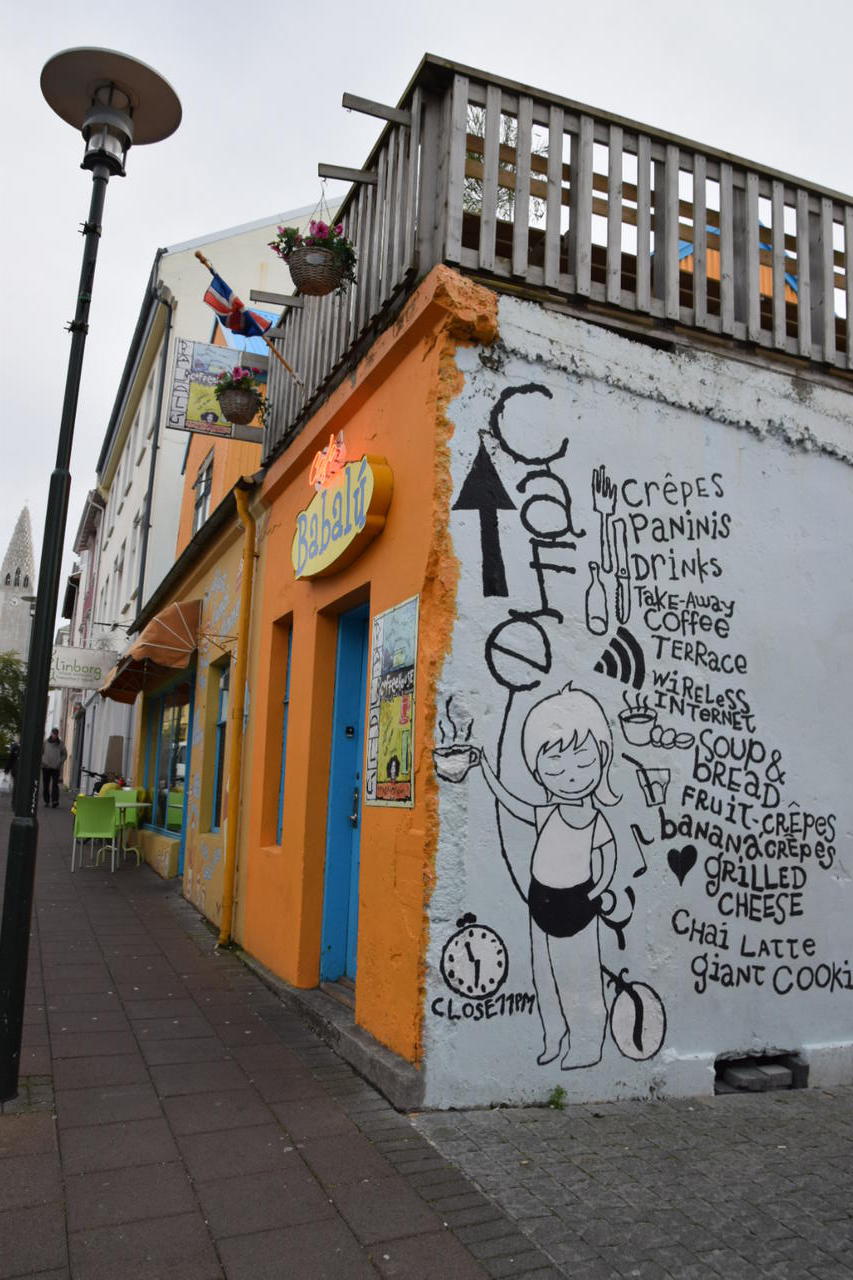 BABALÚ
COFFEEHOUSE
Café
Babalú
Línborg
BABALÚ
COFFEEHOUSE
Café
CRêPES
PANINIS
DRiNKS
TaKE-AWay
COFFEE
TERRaCE
WiRELESS
INTERNET
SOUP &
bREAD
FRUIT-CRÊPES
baNaNaCRêPES
gRiLLED
CHEESE
CHai LaTTe
giaNT COOKi
CLOSE 11PM